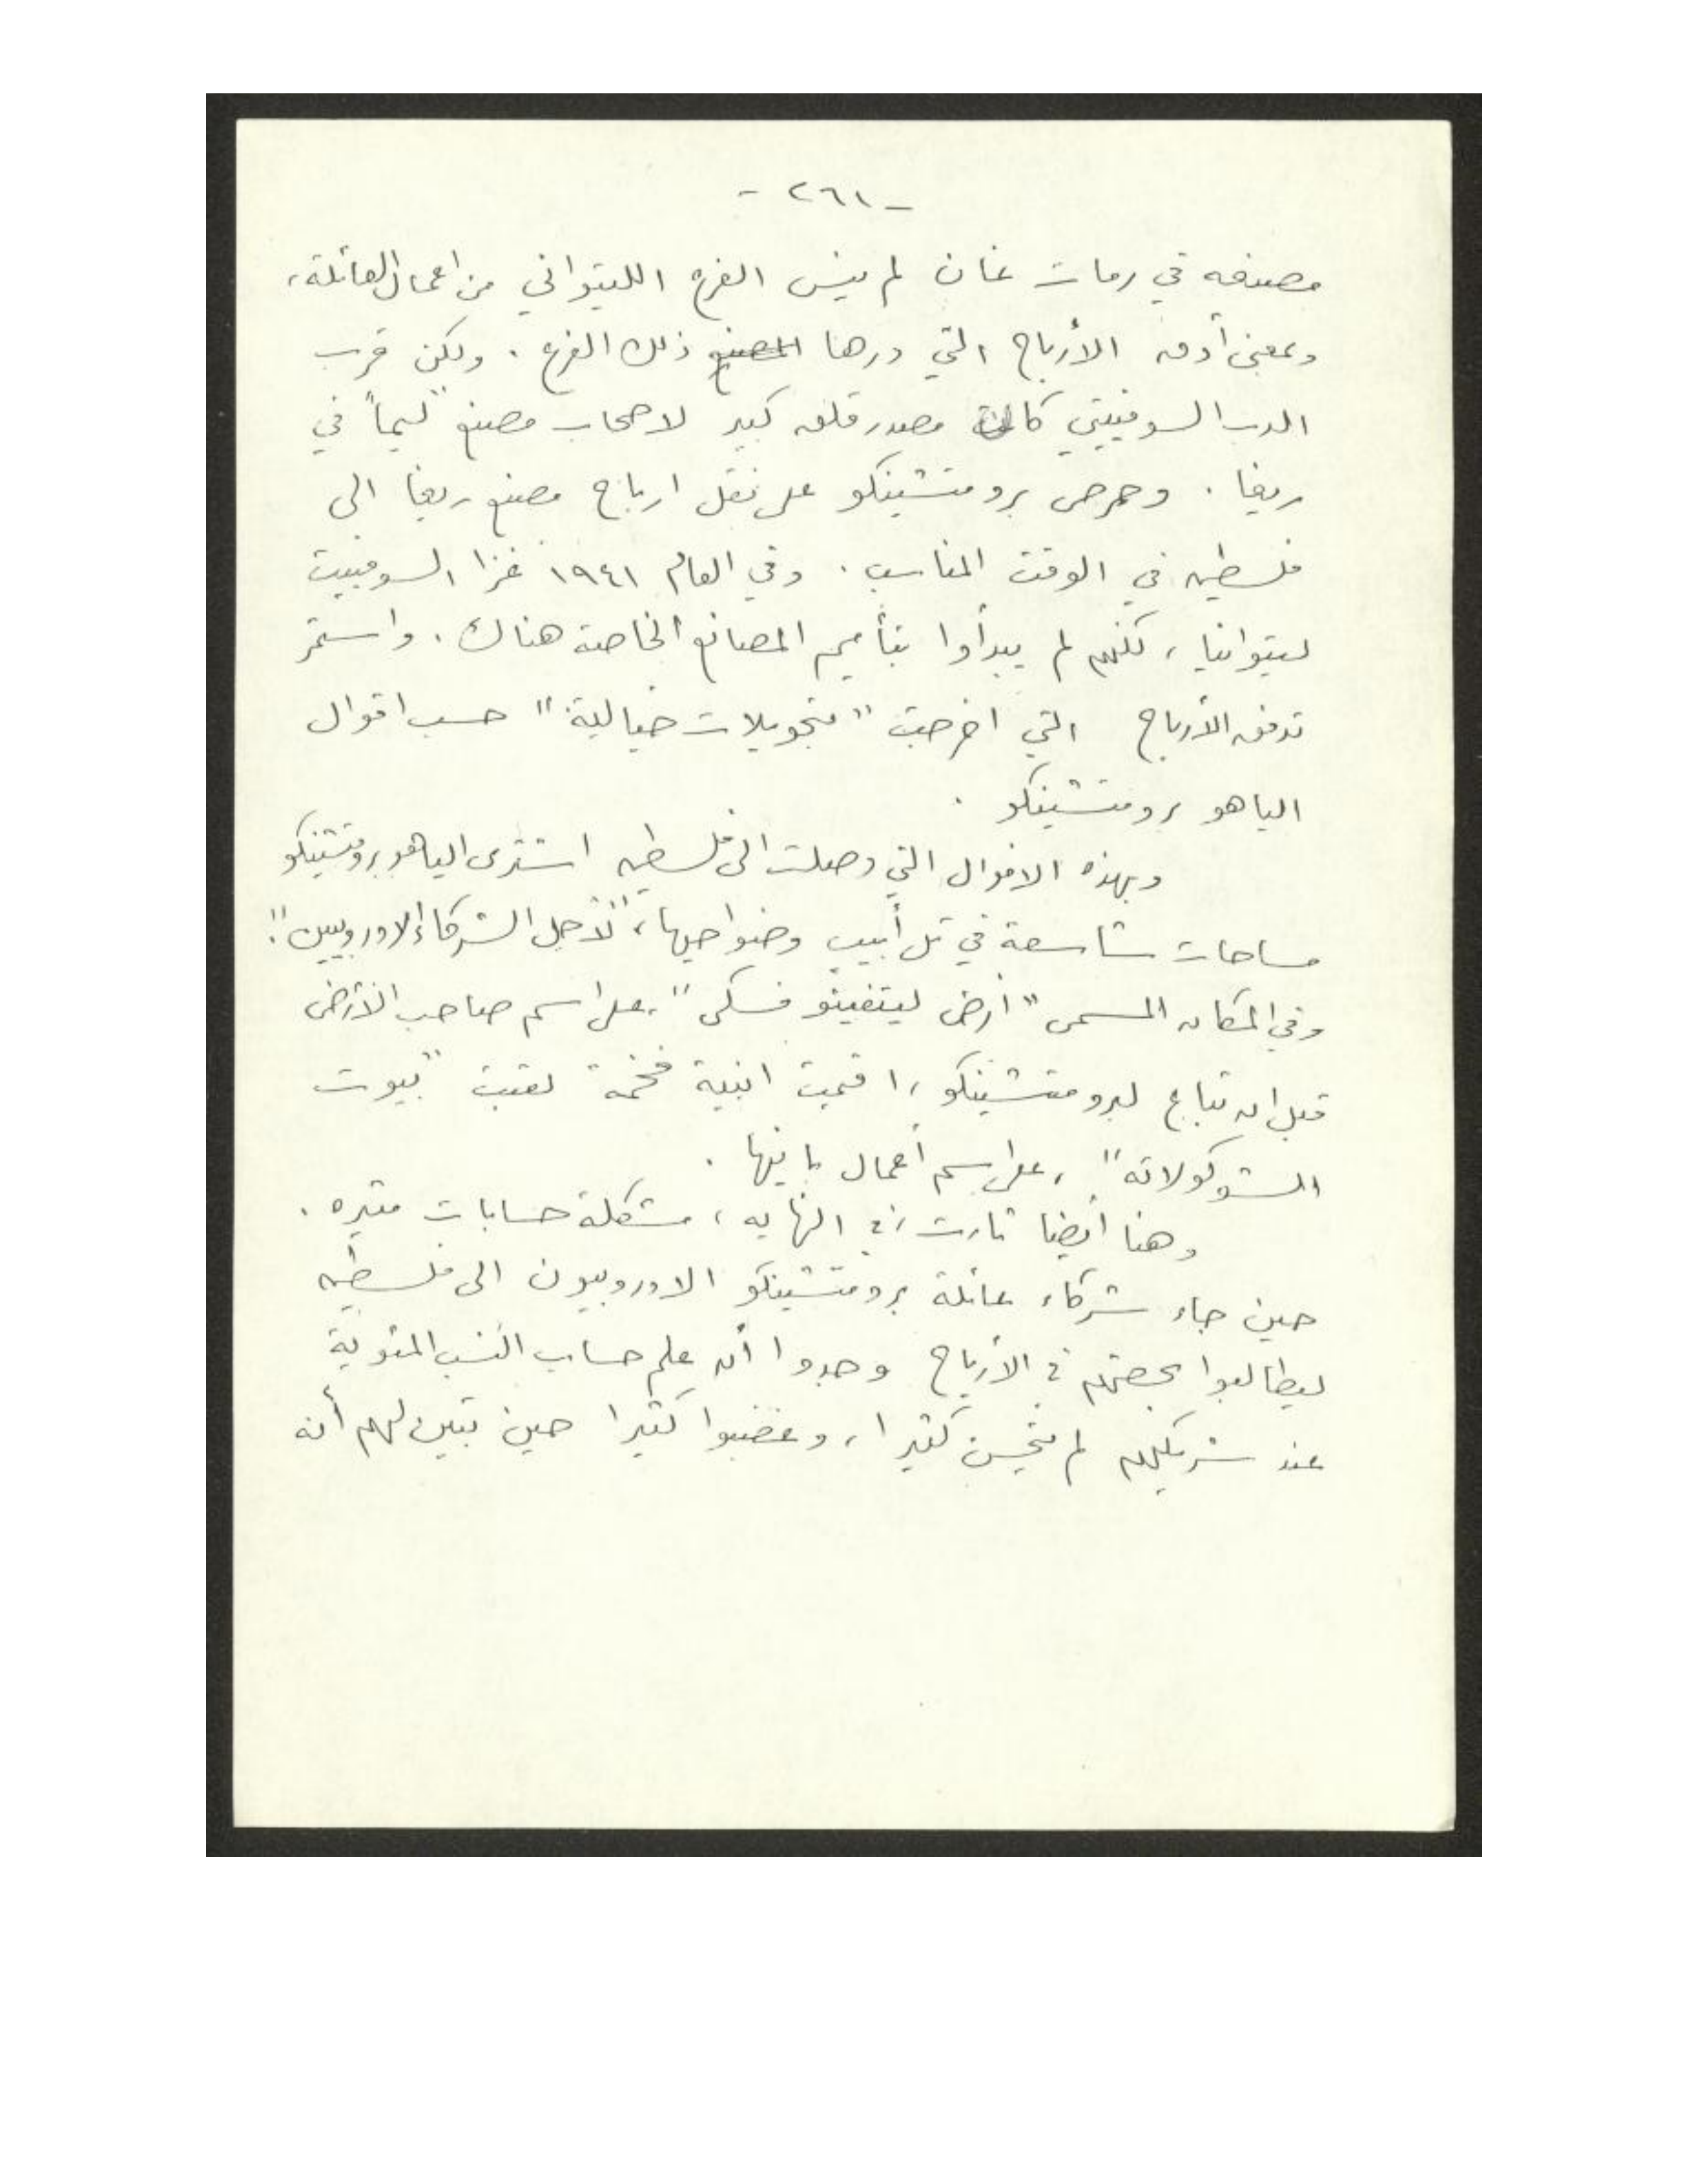 - ٢٦١ -
مصنعه في رمات غان لم ينس الفرع الليتواني من اعمال العائلة،
وبمعنى أدق الأرباح التي درها المصنع ذلك الفرع. ولكن قرب
الدب السوفييتي كان مصدر قلق كبير لاصحاب مصنع "ليما" في
ريغا. وحرص برومتشينكو على نقل ارباح مصنع ريغا الى
فلسطين في الوقت المناسب. وفي العام ١٩٤١ غزا السوفييت
ليتوانيا، لكنهم لم يبدأوا بتأميم المصانع الخاصة هناك. واستمر
تدفق الأرباح التي اخرجت "بتحويلات خيالية" حسب اقوال
الياهو برومتشينكو.
وبهذه الاموال التي وصلت الى فلسطين اشترى الياهو برومتشينكو
مساحات شاسعة في تل أبيب وضواحيها، "لأجل الشركاء الاوروبيين".
وفي المكان المسمى "أرض ليتفينو فسكي"، على اسم صاحب الأرض
قبل ان تباع لبرومتشينكو، اقيمت ابنية فخمة لقبت "بيوت
الشوكولاته"، على اسم أعمال بانيها.
وهنا أيضا ثارت، في النهايه، مشكلة حسابات مثيره.
حين جاء شركاء عائلة برومتشينكو الاوروبيون الى فلسطين
ليطالبوا بحصتهم في الأرباح وجدوا أن علم حساب النسب المئوية
عند شريكهم لم يتحسن كثيرا، وغضبوا كثيرا حين تبين لهم أنه